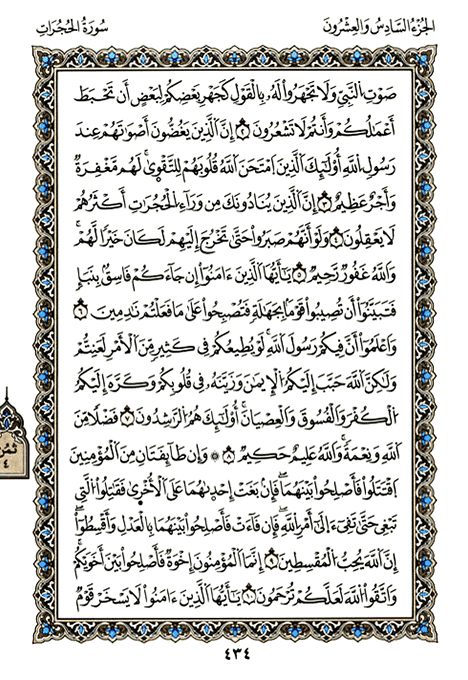 الجُزْءُ السَّادِسُ وَالعِشْرُونَ
سُورَةُ الحُجُرَاتِ
صَوْتِ النَّبِيِّ وَلَا تَجْهَرُوا۟ لَهُۥ بِالْقَوْلِ كَجَهْرِ بَعْضِكُمْ لِبَعْضٍ أَن تَحْبَطَ
أَعْمَٰلُكُمْ وَأَنتُمْ لَا تَشْعُرُونَ ٢ إِنَّ الَّذِينَ يَغُضُّونَ أَصْوَٰتَهُمْ عِندَ
رَسُولِ اللَّهِ أُو۟لَٰٓئِكَ الَّذِينَ امْتَحَنَ اللَّهُ قُلُوبَهُمْ لِلتَّقْوَىٰ لَهُم مَّغْفِرَةٌ
وَأَجْرٌ عَظِيمٌ ٣ إِنَّ الَّذِينَ يُنَادُونَكَ مِن وَرَآءِ الْحُجُرَٰتِ أَكْثَرُهُمْ
لَا يَعْقِلُونَ ٤ وَلَوْ أَنَّهُمْ صَبَرُوا۟ حَتَّىٰ تَخْرُجَ إِلَيْهِمْ لَكَانَ خَيْرًا لَّهُمْ
وَاللَّهُ غَفُورٌ رَّحِيمٌ ٥ يَٰٓأَيُّهَا الَّذِينَ ءَامَنُوٓا۟ إِن جَآءَكُمْ فَاسِقٌ بِنَبَإٍ
فَتَبَيَّنُوٓا۟ أَن تُصِيبُوا۟ قَوْمًا بِجَهَٰلَةٍ فَتُصْبِحُوا۟ عَلَىٰ مَا فَعَلْتُمْ نَٰدِمِينَ ٦
وَاعْلَمُوٓا۟ أَنَّ فِيكُمْ رَسُولَ اللَّهِ لَوْ يُطِيعُكُمْ فِى كَثِيرٍ مِّنَ الْأَمْرِ لَعَنِتُّمْ
وَلَٰكِنَّ اللَّهَ حَبَّبَ إِلَيْكُمُ الْإِيمَٰنَ وَزَيَّنَهُۥ فِى قُلُوبِكُمْ وَكَرَّهَ إِلَيْكُمُ
الْكُفْرَ وَالْفُسُوقَ وَالْعِصْيَانَ أُو۟لَٰٓئِكَ هُمُ الرَّٰشِدُونَ ٧ فَضْلًا مِّنَ
اللَّهِ وَنِعْمَةً وَاللَّهُ عَلِيمٌ حَكِيمٌ ٨ ۞ وَإِن طَآئِفَتَانِ مِنَ الْمُؤْمِنِينَ
اقْتَتَلُوا۟ فَأَصْلِحُوا۟ بَيْنَهُمَا فَإِنۢ بَغَتْ إِحْدَىٰهُمَا عَلَى الْأُخْرَىٰ فَقَٰتِلُوا۟ الَّتِى
تَبْغِى حَتَّىٰ تَفِىٓءَ إِلَىٰٓ أَمْرِ اللَّهِ فَإِن فَآءَتْ فَأَصْلِحُوا۟ بَيْنَهُمَا بِالْعَدْلِ وَأَقْسِطُوٓا۟
إِنَّ اللَّهَ يُحِبُّ الْمُقْسِطِينَ ٩ إِنَّمَا الْمُؤْمِنُونَ إِخْوَةٌ فَأَصْلِحُوا۟ بَيْنَ أَخَوَيْكُمْ
وَاتَّقُوا۟ اللَّهَ لَعَلَّكُمْ تُرْحَمُونَ ١٠ يَٰٓأَيُّهَا الَّذِينَ ءَامَنُوا۟ لَا يَسْخَرْ قَوْمٌ
ثُمُن
٤
٤٣٤